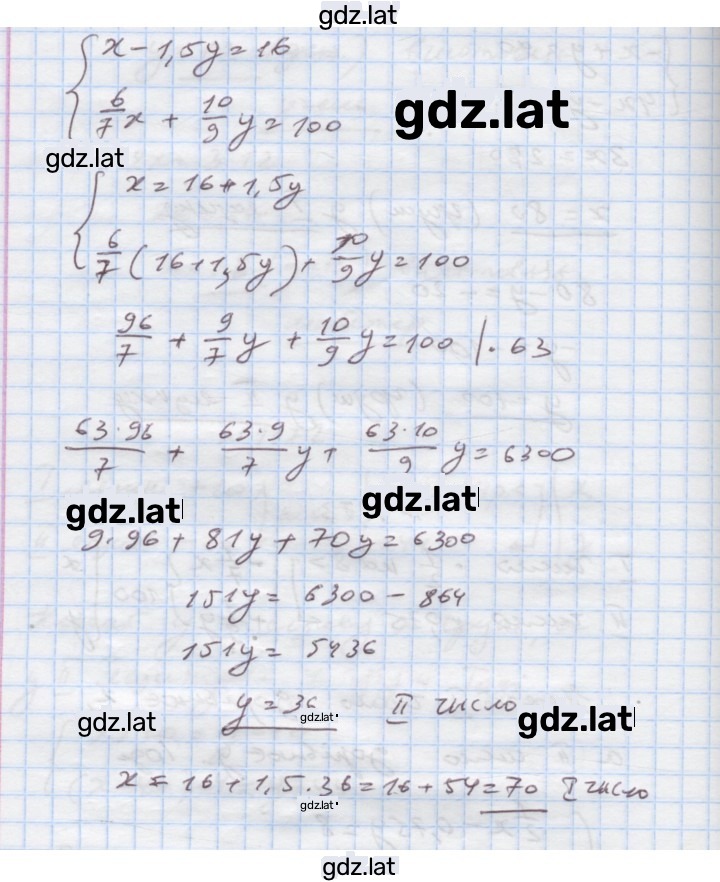 gdz.lat
x - 1,5y = 16
6/7 x + 10/9 y = 100
gdz.lat
gdz.lat
x = 16 + 1,5y
6/7 (16 + 1,5y) + 10/9 y = 100
96/7 + 9/7 y + 10/9 y = 100 | · 63
63·96/7 + 63·9/7 y + 63·10/9 y = 6300
gdz.lat
gdz.lat
9·96 + 81y + 70y = 6300
151y = 6300 - 864
151y = 5436
y = 36 II число
gdz.lat
gdz.lat
gdz.lat
x = 16 + 1,5·36 = 16 + 54 = 70 I число
gdz.lat
gdz.lat